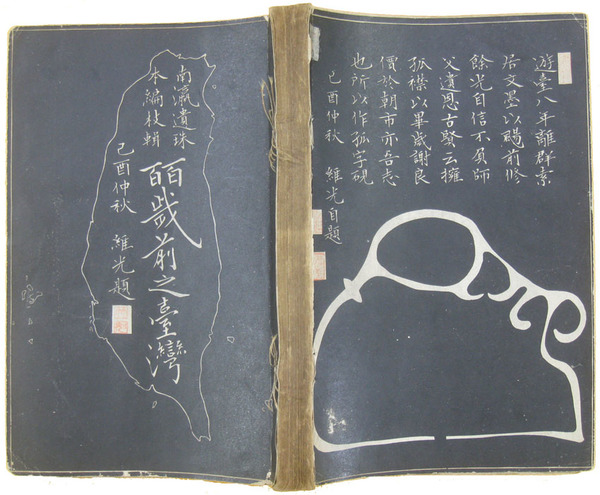 遊臺八年離群索
居文墨以賜前修
餘光自信不負師
父遺恩古賢云擁
孤襟以畢歲謝良
價於朝市亦吾志
也所以作孤字硯
己酉仲秋 維光自題
南瀛遺珠
本編校輯
皕歲前之臺灣
己酉仲秋 維光題